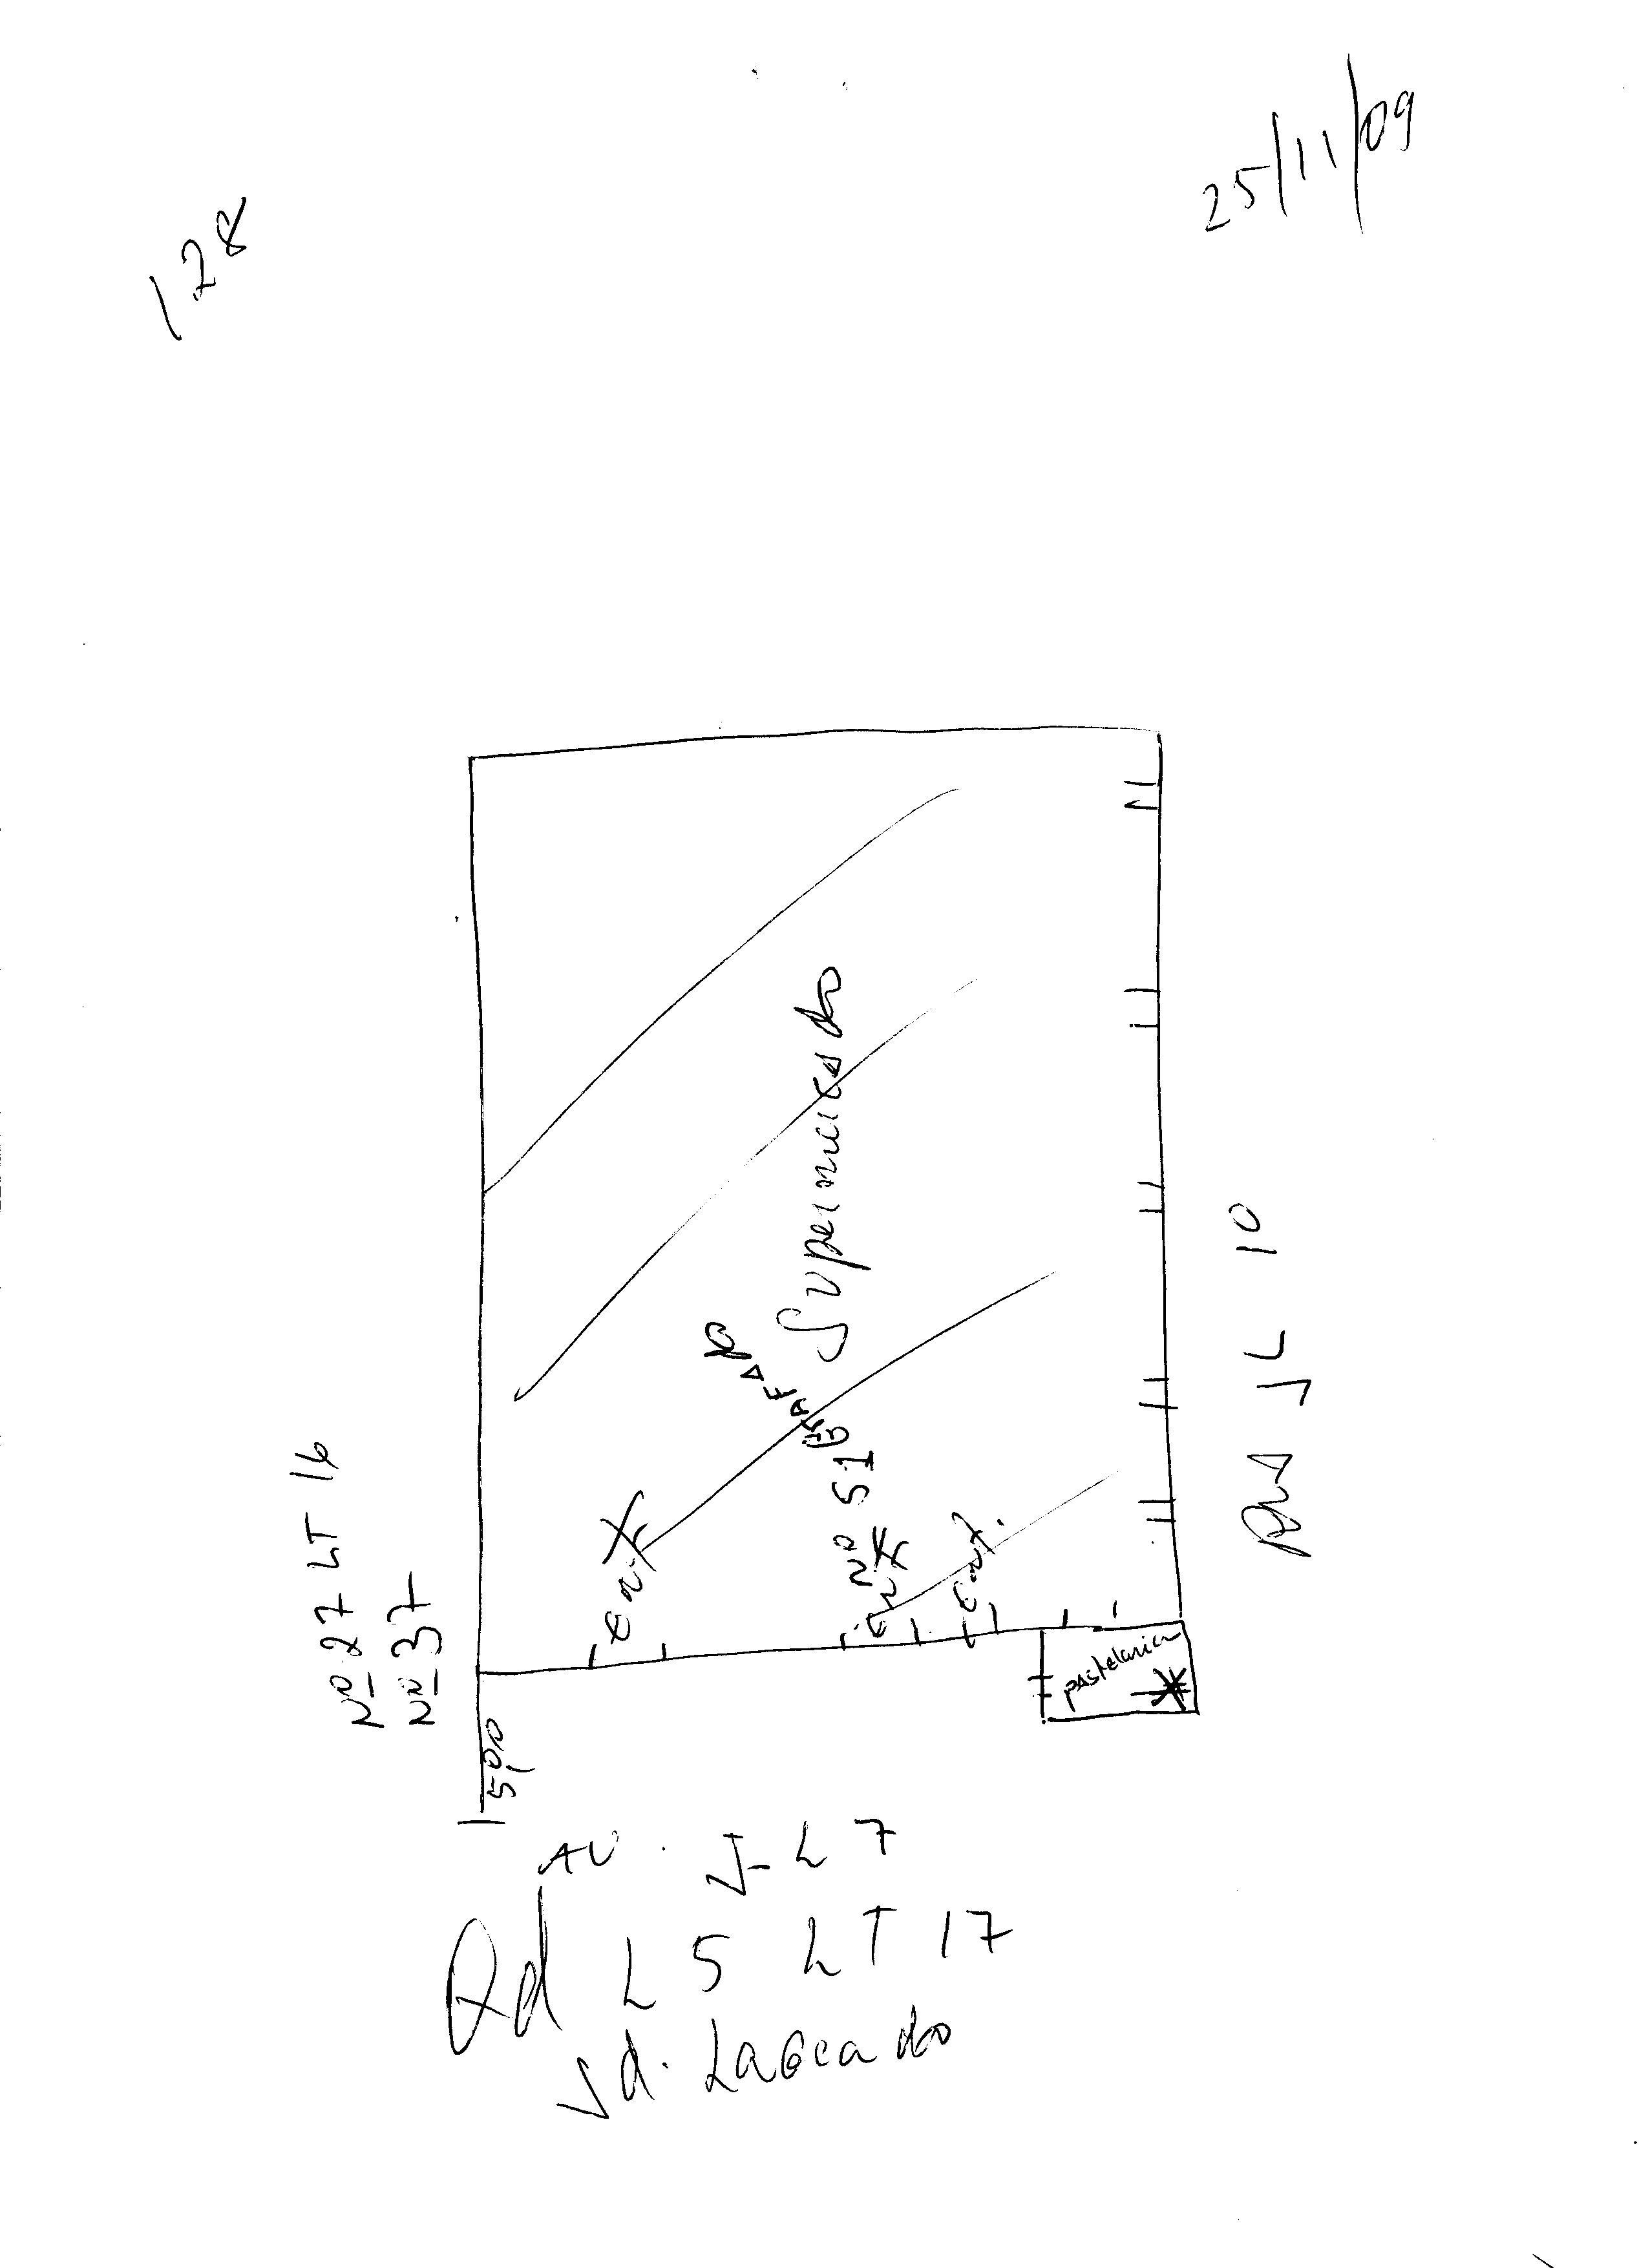 128
25/11/09
Nº 27 LT 16
Nº 37
Supermercado
Nº 51
Ent
Ent
Ent.
Rua JL 10
pastelaria
5,00
AV. JL 7
Qd L 5 LT 17
Jd. Lageado